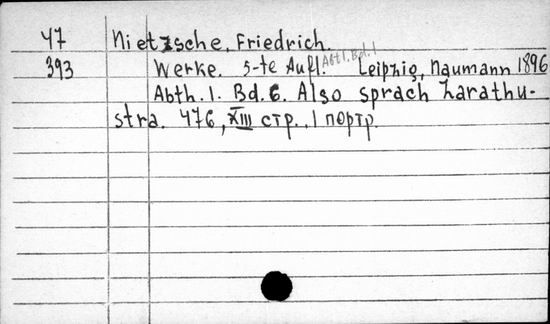 47 Nietzsche, Friedrich.
393 Werke. 5-te Aufl. Abt I. Bd. I Leipzig, Naumann 1896
Abth. I. Bd. 6. Also sprach Zarathu-
stra. 476, XIII стр., 1 портр.